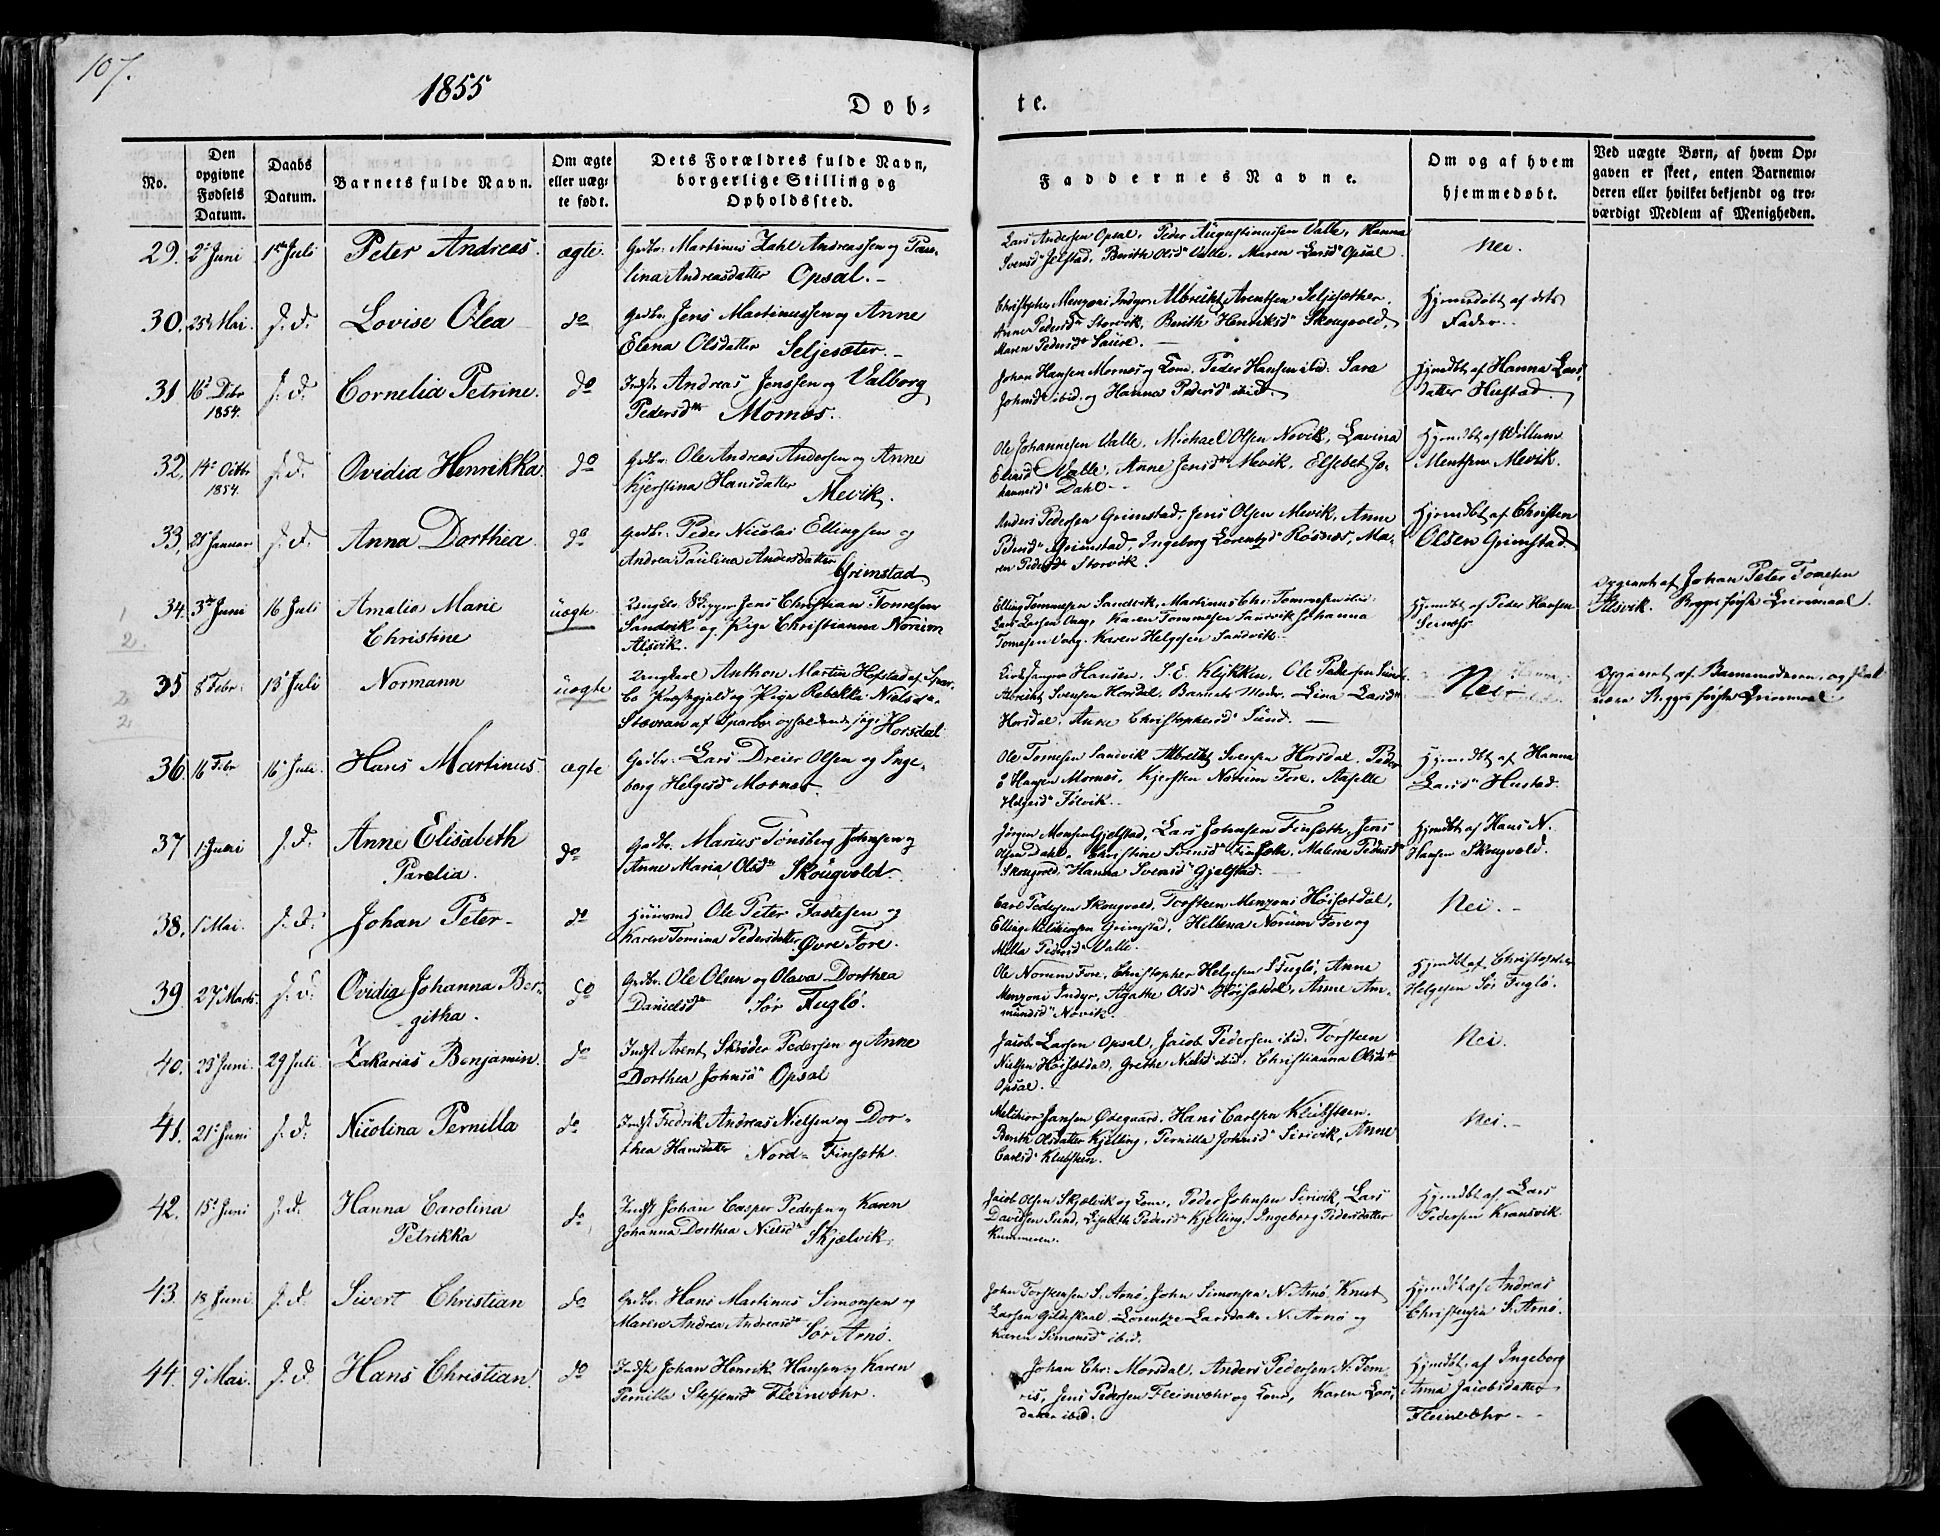 107.
1855
Døb-
te.
No.
Den opgivne Fødsels Datum.
Daabs Datum.
Barnets fulde Navn.
Om ægte eller uægte født.
Dets Forældres fulde Navn, borgerlige Stilling og Opholdssted.
Faddernes Navne.
Om og af hvem hjemmedøbt.
Ved uægte Børn, af hvem Opgaven er skeet, enten Barnemoderen eller hvilket bekjendt og troværdigt Medlem af Menigheden.
29. 2 Juni 1ste Juli Peter Andreas ægte.
Grdbr. Martinus Zahl Andreassen og Pau-
lina Andreasdatter Opsal.
Lars Andersen Opsal, Peder Augustinussen Valle, Hanna
Svensd Jelstad, Berith Olsd Valle, Maren Larsd Opsal
Nei.
30. 25 Mai s. d. Lovise Olea do
Grdbr. Jens Martinussen og Anne
Elena Olsdatter Seljesæter.
Christopher Menzoni Indyr, Albrikt Arentsen Seljesæther.
Anne Pedersd Storvik, Berith Henriksd Skougvold,
Maren Pedersd Saure.
Hjemdøbt af dets
Fader.
31 16 Debr 1854. s. d. Cornelia Petrine. do
Indst. Andreas Jenssen og Valborg
Pedersdtr Mornes.
Johan Hansen Mornes og Kone, Peder Hansen ibid. Sara
Johnsd ibid. og Hanna Pedersd ibid.
Hjemdbt af Hanna Lars-
datter Hustad.
32. 14 Octbr 1854. s. d. Ovidia Henrikka do
Grdbr. Ole Andreas Andersen og Anne
Kjerstina Hansdatter Mevik.
Ole Johannesen Valle, Michael Olsen Novik, Lavina
Elvisd Valle, Anne Jensd Mevik, Elsebet Jo-
hannesd Dahl
Hjemdbt af Willum
Mentzen Mevik.
33. 21 Januar s. d. Anna Dorthea do
Grdbr. Peder Nicolai Ellingsen og
Andrea Paulina Andersdatter
Grimstad
Anders Pedersen Grimstad, Jens Olsen Mevik, Anne
Pedersd Grimstad, Ingeborg Lorentzd Rosnes, Ma-
ren Pedersd Storvik.
Hjemdbt af Christen
Olsen Grimstad
34. 3 Juni 16 Juli Amalia Marie
Christine uægte
Ungkl. & Skipper Jens Christian Tomesen
Sandvik og Pige Christianna Norum
Alsvik.
Elling Tommesen Sandvik, Martinus Chr. Tommesen ibid.
Lars Larsen Vaag, Karen Tommesen Sandvik Johanna
Tomesen Vaag. Karen Helgesen Sandvik
Hjemdbt af Peder Hansen
Opgivet af Johan Peter Tomesen
Alsvik. Begges første Leiermaal.
35 8 Febr. 15 Juli Normann uægte
Ungkarl Anthon Martin Hofstad af Spar-
bo Præstegjeld og Pige Rebekka Nielsd
Stavran af Sparbo opholdende sig i Horsdal
Kirkesanger Hansen, S. E. Klykken, Ole Pedersen Sund
Albrikt Svensen Horsdal, Barnets Moder, Lina Larsd
Horsdal, Anne Christophersd Sund.
Nei
Opgivet af Barnemoderen, og skal
være Begges første Leiermaal
36. 16 Febr 16 Juli Hans Martinus ægte
Grdbr. Lars Dreier Olsen og Inge-
borg Helgesd Mornes.
Ole Tomesen Sandvik Albrikt Svensen Horsdal. Peder
Hansen Mornes, Kjersten Norum Fore, Aaselle
Helgesd Folvik.
Hjemdbt af Hanna
Larsd Hustad.
37 1 Juni s. d. Anne Elisabeth
Parelia. do
Grdbr. Marius Tønsberg Johnsen og
Anne Maria Olsd Skougvold.
Jørgen Monsen Gjelstad, Lars Johnsen Finsæth, Jens
Olsen Dahl, Christine Svensd Finsæth, Malena Pedersd
Skougvold, Hanna Svensd Gjelstad.
Hjemdbt af Hans N.
Hansen Skougvold.
38. 1 Mai. s. d. Johan Peter do
Huusmd Ole Peter Fastesen og
Karen Tomina Pedersdatter Øvre Fore.
Carl Pedersen Skougvold, Torsteen Menzoni Høisetdal,
Elling Melchiorsen Grimstad, Hellena Norum Fore og
Milla Pedersd Valle.
Nei.
39. 27 Marts. s. d. Ovidia Johanna Ber-
githa. do
Grdbr. Ole Olsen og Olava Dorthea
Danielsd Sør Fuglø.
Ole Norum Fore, Christopher Helgesen S. Fuglø, Anne
Menzoni Indyr, Agathe Olsd Høisetdal, Anne Am-
mundsd Novik.
Hjemdbt af Christopher
Helgesen Sør Fuglø.
40. 25 Juni. 29 Juli. Zakarias Benjamin. do
Indst Arent Skrøder Pedersen og Anne
Dorthea Johnsd Opsal
Jacob Larsen Opsal, Jacob Pedersen ibid. Torsteen
Nielsen Høisetdal, Grethe Nielsd ibid. Christianna Olsdtr
Opsal.
Nei.
41. 21 Juni s. d. Nicolina Pernilla do
Indst Fredrik Andreas Nielsen og Dor-
thea Hansdatter Nord-Finsæth.
Melchior Jansen Ødegaard, Hans Carlsen Klubsteen.
Berith Olsdatter Kjelling, Pernilla Johnsd Sirivik, Anne
Carlsd Klubsteen.
Nei.
42. 15 Juni s. d. Hanna Carolina
Petrikka do
Indst Johan Casper Pedersen og Karen
Johanna Dorthea Nielsd Skjælvik.
Jacob Olsen Skjælvik og Kone, Peder Johnsen Sirivik, Lars
Davidsen Sund, Elisabeth Pedersd Kjelling, Ingeborg Pedersdatter
Kunneren.
Hjemdbt af Lars
Pedersen Kransvik.
43. 18 Juni. s. d. Sivert Christian do
Grdbr. Hans Martinus Simonsen og
Maren Andrea Andreasd Sør Arnø.
John Torstensen S. Arnø, John Simonsen N. Arnø, Knut
Larsen Gildeskaal, Lorentze Larsdatter N. Arnø og
Karen Simonsd ibid.
Hjemdbt af Andreas
Christensen S. Arnø.
44. 9 Mai. s. d. Hans Christian. do
Indst Johan Henrik Hansen og Karen
Pernilla Steffensd Fleinvehr.
Johan Chr. Morsdal, Anders Pedersen N. Fom-
res, Jens Pedersen Fleinvehr og Kone, Karen Lars-
datter ibid.
Hjemdbt af Ingeborg
Anna Jacobsdatter
Fleinvehr